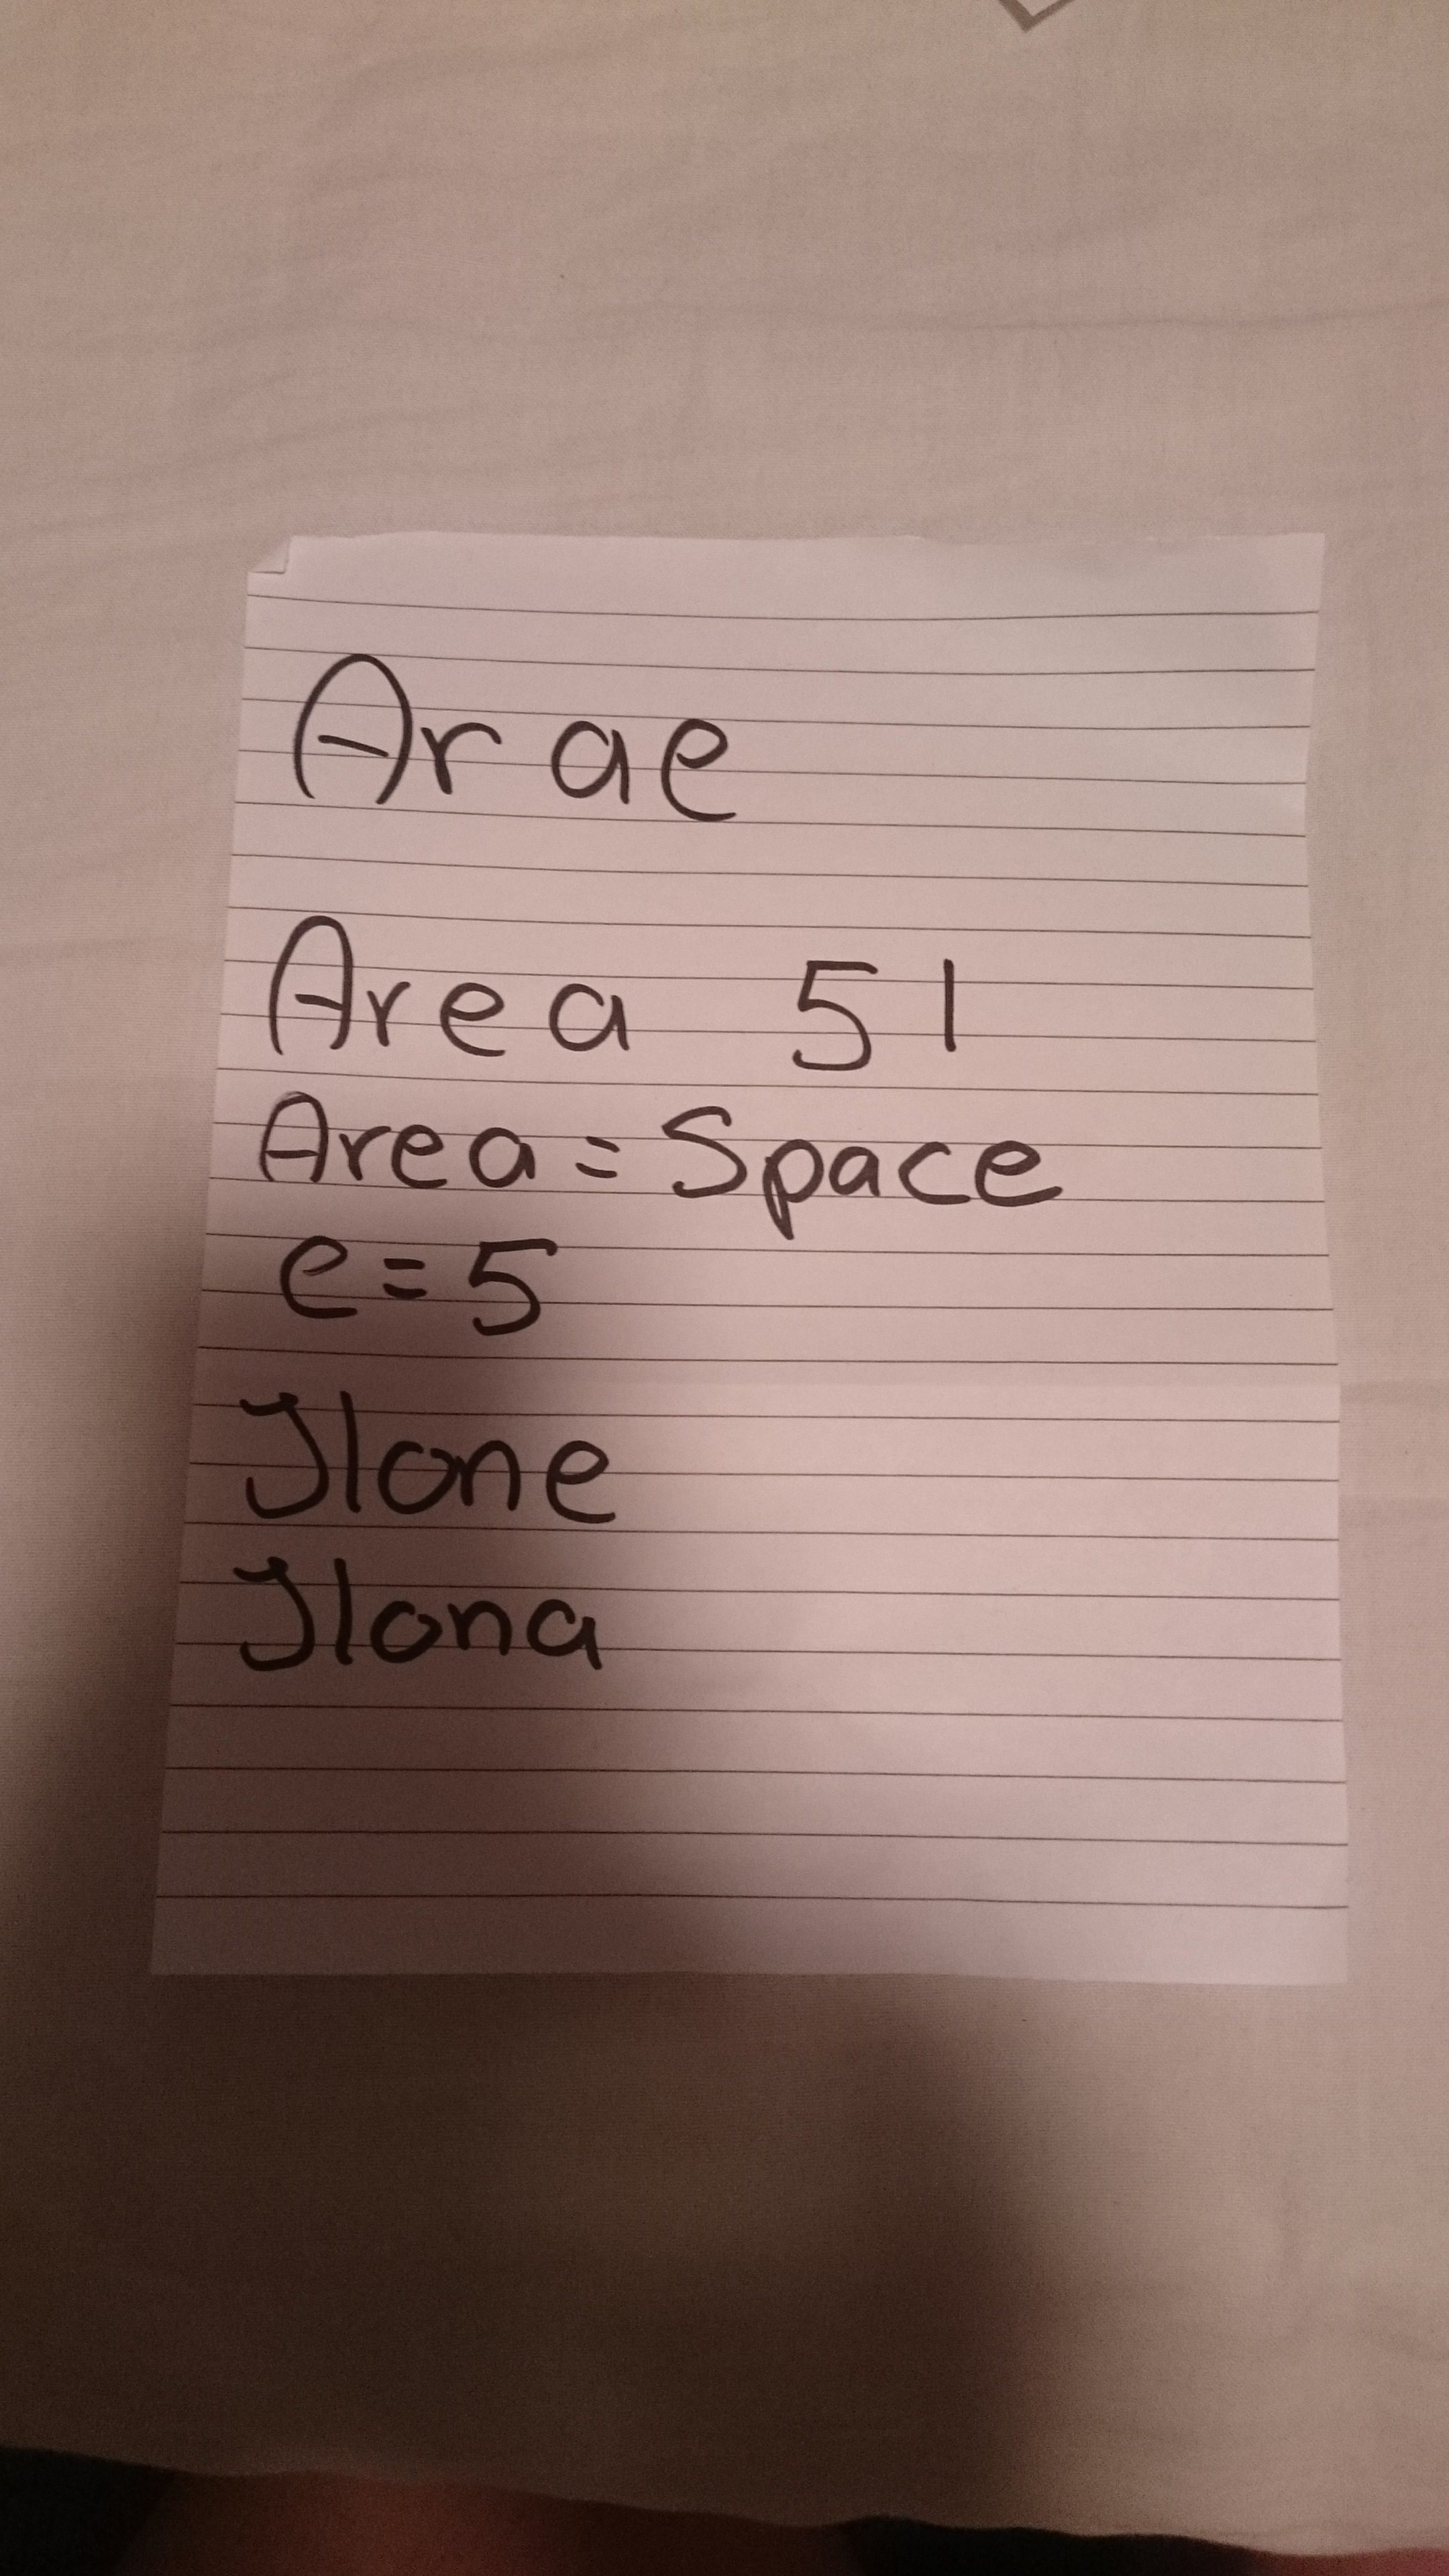 Arae
Area 51
Area = Space
e = 5
Ilone
Ilona